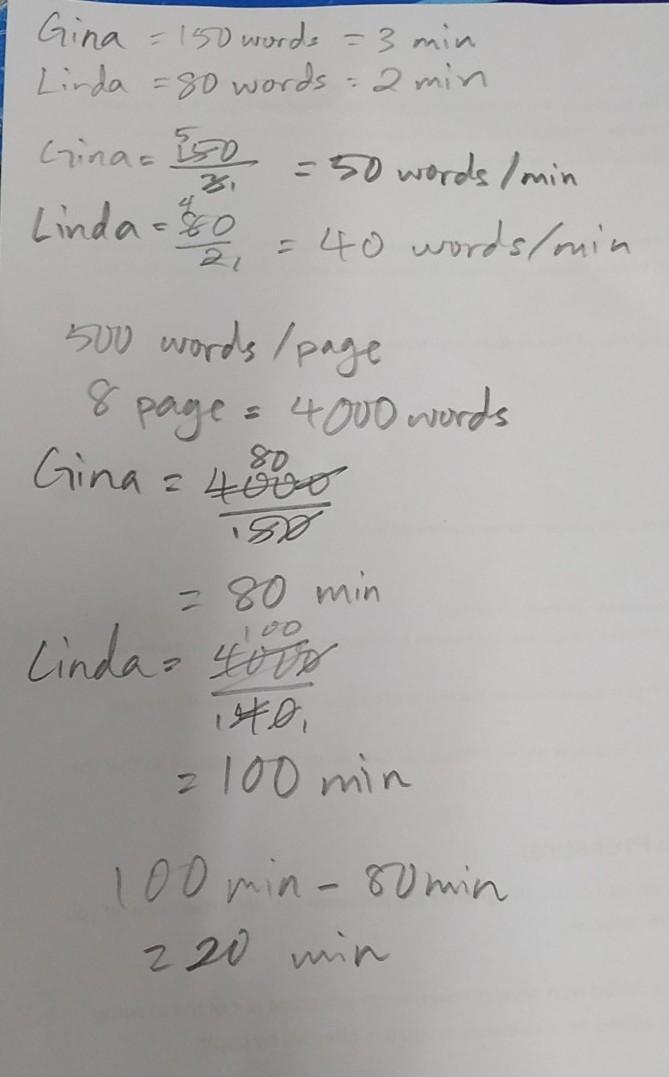 Gina = 150 words = 3 min
Linda = 80 words = 2 min
Gina = 150/3 = 50 words/min
Linda = 80/2 = 40 words/min
500 words/page
8 page = 4000 words
80
Gina = 4000/50
= 80 min
100
Linda = 4000/40
= 100 min
100 min - 80 min
= 20 min